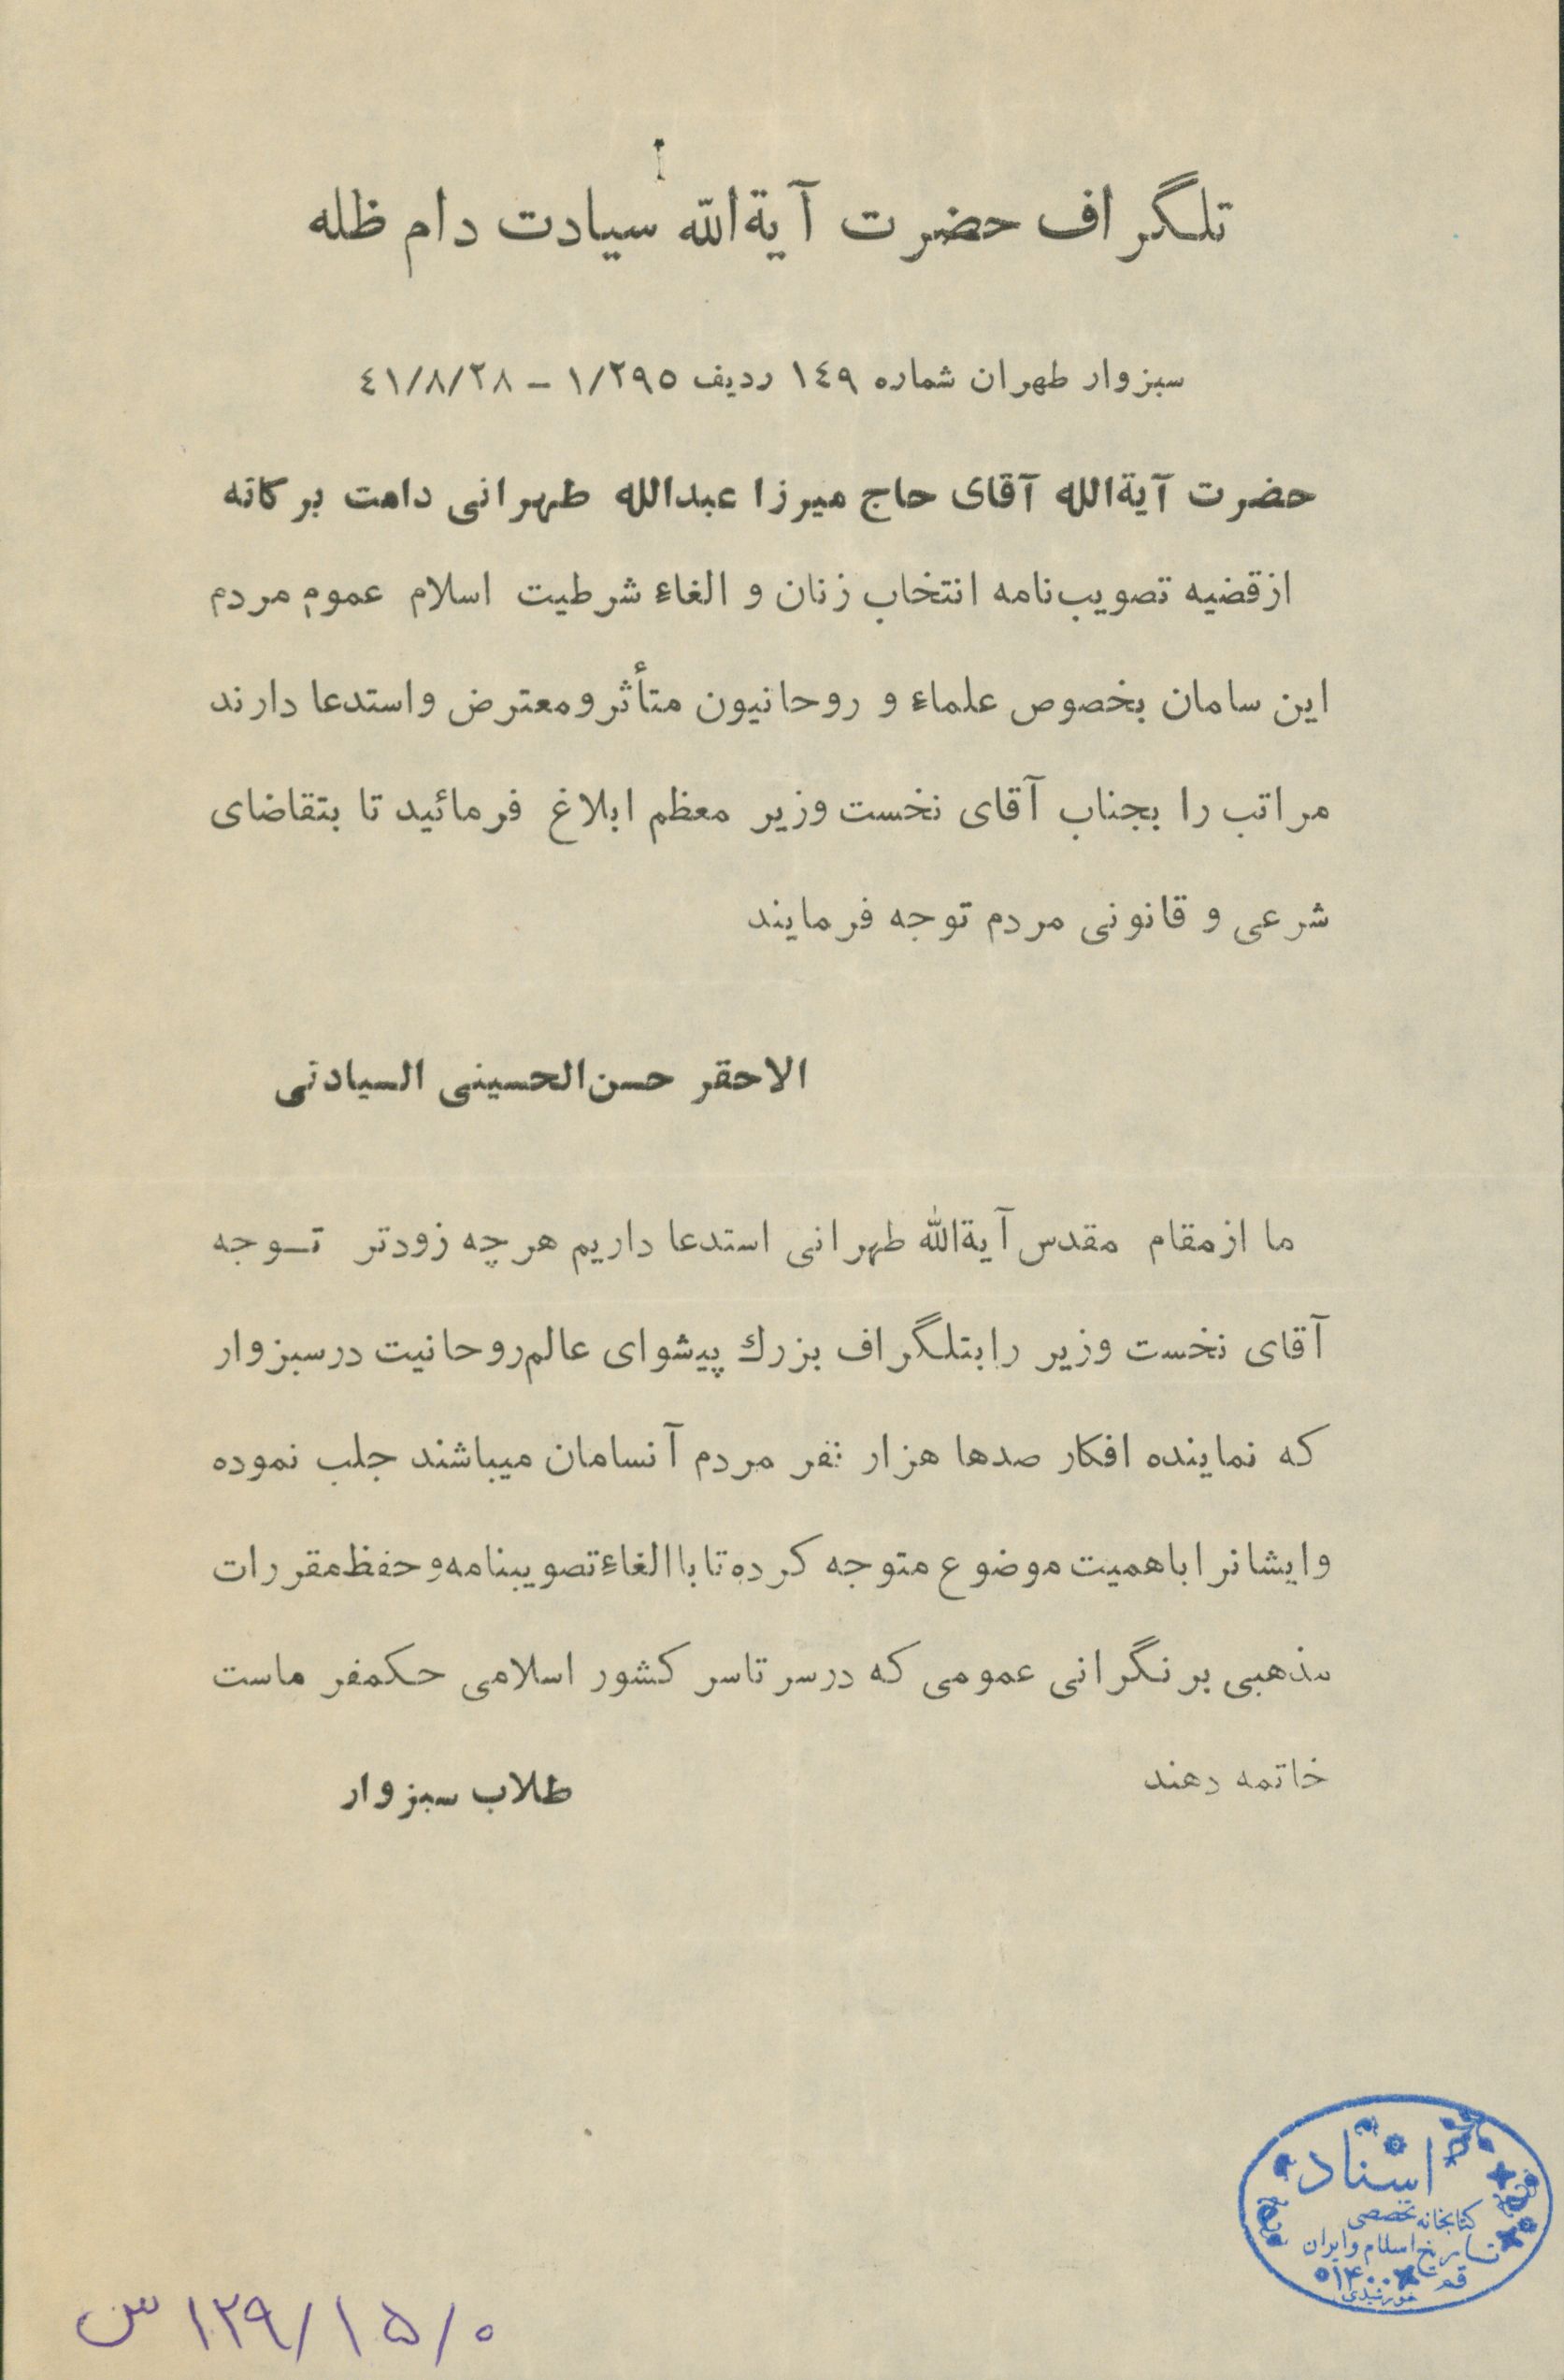 تلگراف حضرت آیةالله سیادت دام ظله
سبزوار طهران شماره ١٤٩ ردیف ١/٢٩٥ – ٤١/٨/٢٨
حضرت آیةالله آقای حاج میرزا عبدالله طهرانی دامت برکاته
ازقضیه تصویب‌نامه انتخاب زنان و الغاء شرطیت اسلام عموم مردم
این سامان بخصوص علماء و روحانیون متأثر ومعترض واستدعا دارند
مراتب را بجناب آقای نخست وزیر معظم ابلاغ فرمائید تا بتقاضای
شرعی و قانونی مردم توجه فرمایند
الاحقر حسن‌الحسینی السیادتی
ما ازمقام مقدس آیةالله طهرانی استدعا داریم هرچه زودتر تـوجه
آقای نخست وزیر رابتلگراف بزرك پیشوای عالم‌روحانیت درسبزوار
که نماینده افکار صدها هزار نفر مردم آنسامان میباشند جلب نموده
وایشانرا باهمیت موضوع متوجه کرده تا باالغاءتصویبنامه و حفظ مقررات
مذهبی برنگرانی عمومی که درسرتاسر کشور اسلامی حکمفر ماست
خاتمه دهند
طلاب سبزوار
اسناد
کتابخانه تخصصی
تاریخ اسلام و ایران
قم
خورشیدی
١٢٩/١٥/٠ س